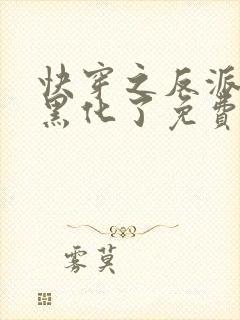 快穿之反派
黑化了免費
雾莫